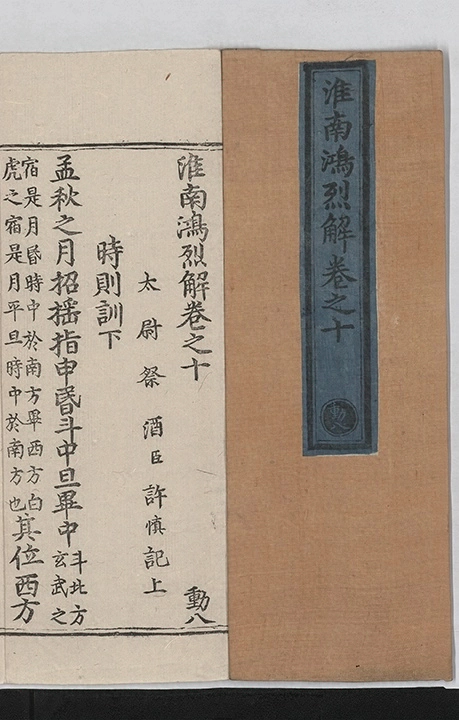 淮南鴻烈解卷之十
動
淮南鴻烈解卷之十
動八
太尉祭酒臣許慎記上
時則訓下
孟秋之月招揺指申昏斗中旦畢中斗北方
玄武之
宿是月昏時中於南方畢西方白
虎之宿是月平旦時中於南方也其位西方